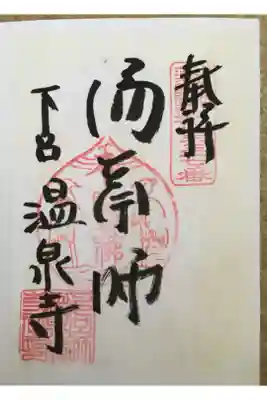 奉拝
湯薬師
下呂 温泉寺